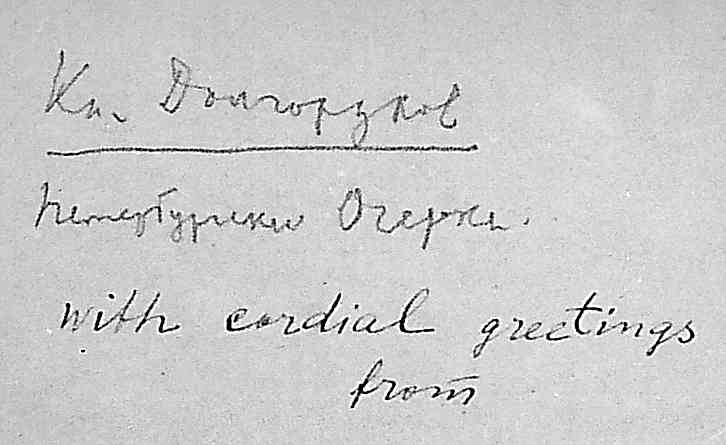 Кн. Долгоруков
Петербургские Очерки.
with cordial greetings
from